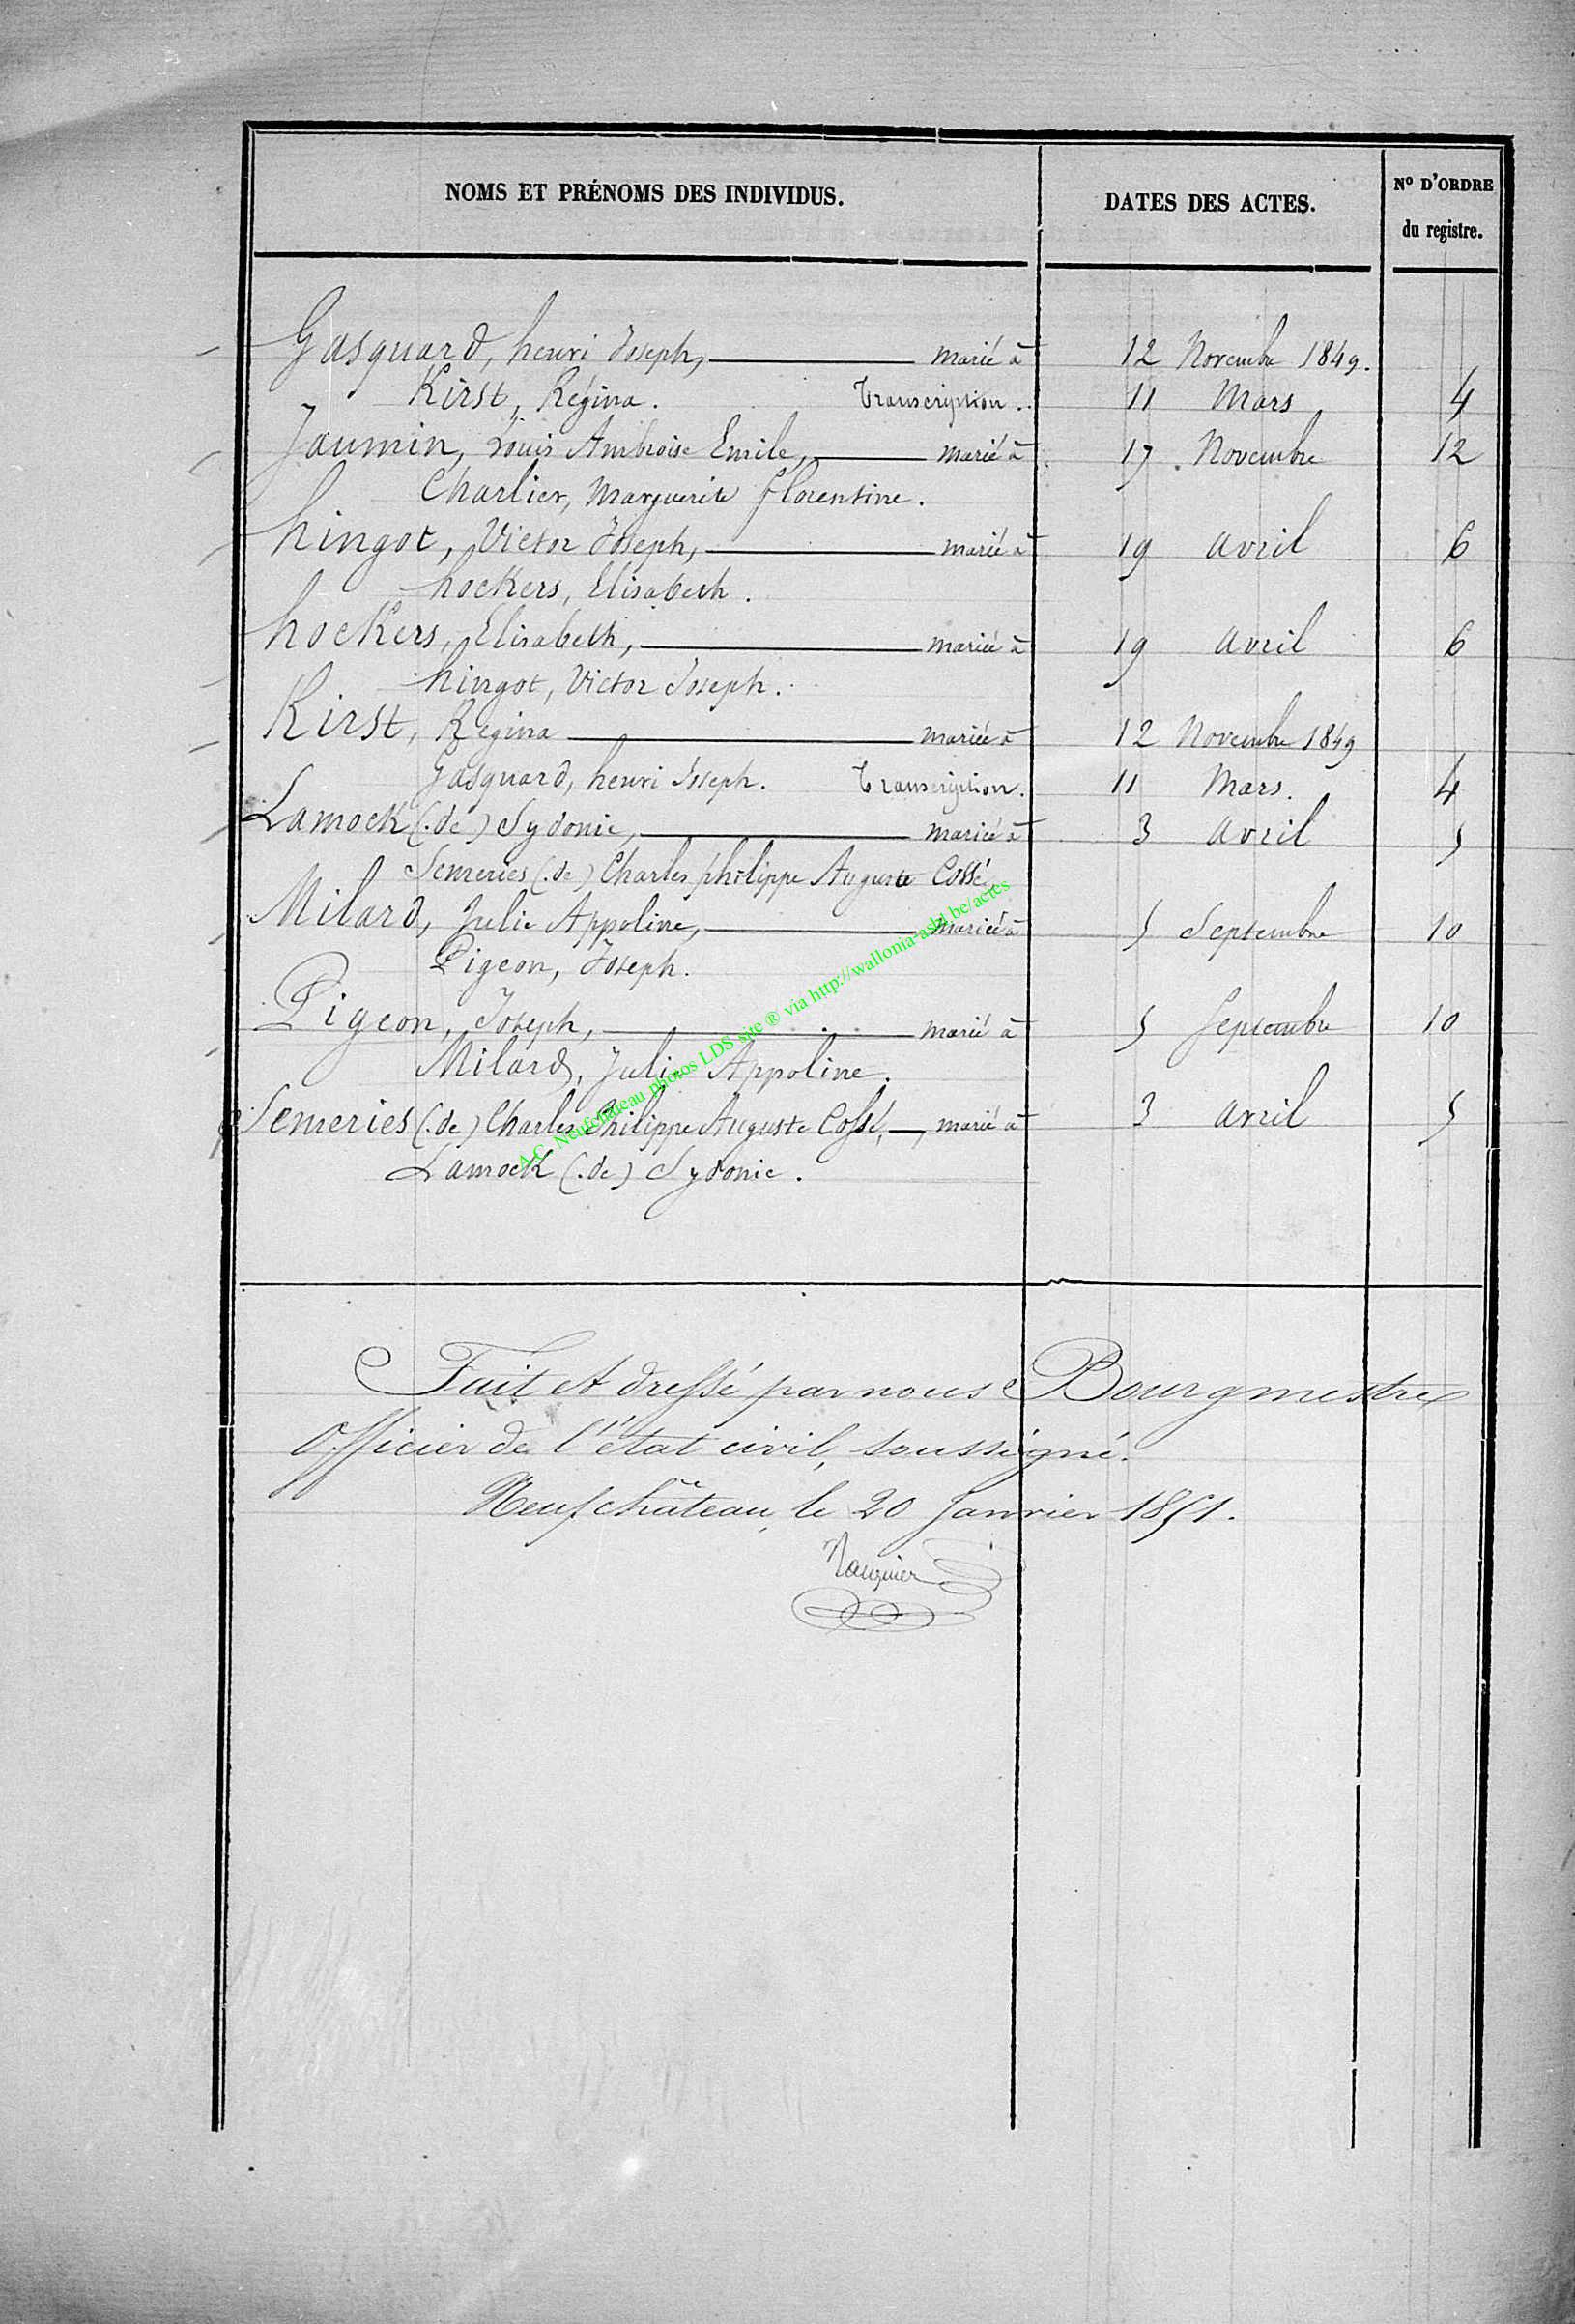 NOMS ET PRÉNOMS DES INDIVIDUS. DATES DES ACTES. N° D'ORDRE
du registre.
Gasguard, henri Joseph, marié à 12 Novembre 1849.
Kirst, Régina. Transcription. 11 Mars 4
Jaumin, Louis Ambroise Emile, marié à 17 Novembre 12
Charlier, Marguerite florentine.
hingot, Victor Joseph, marié à 19 avril 6
hockers, Elisabeth.
hockers, Elisabeth, mariée à 19 avril 6
hingot, Victor Joseph.
Kirst, Regina mariée à 12 Novembre 1849
Gasguard, henri Joseph. Transcription. 11 Mars. 4
Lamock (de) Sydonie, mariée à 3 avril 5
Semeries (de) Charles philippe Auguste Cossé,
Milard, Julie Appoline, mariée à 5 Septembre 10
Pigeon, Joseph.
Pigeon, Joseph, marié à 5 Septembre 10
Milard, Julie Appoline.
Semeries (de) Charles Philippe Auguste Cossé, marié à 3 avril 5
Lamock (de) Sydonie.
A.C. Neufchâteau photos LDS site ® via http://wallonia-asbl.be/actes
Fait et dressé par nous Bourgmestre
Officier de l'état civil, soussigné.
Neufchâteau, le 20 Janvier 1851.